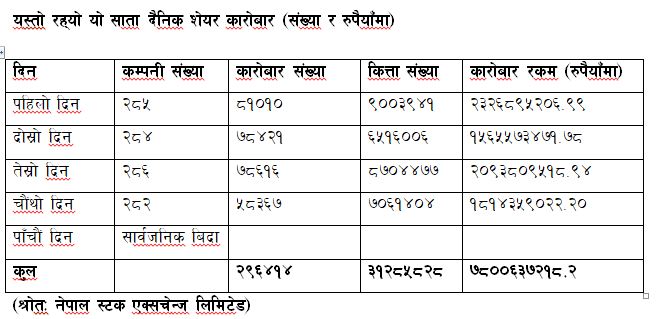 यस्तो रह्यो यो साता दैनिक शेयर कारोबार (संख्या र रुपैयाँमा)
दिन कम्पनी संख्या कारोबार संख्या कित्ता संख्या कारोबार रकम (रुपैयाँमा)
पहिलो दिन २८५ ८१०१० ९००३९४१ २३२६८९५२०६.९९
दोस्रो दिन २८४ ७८४२१ ६५१६००६ १५६५५७३४७१.७८
तेस्रो दिन २८६ ७८६१६ ८७०४४७७ २०९३८०९५१८.९४
चौंथो दिन २८२ ५८३६७ ७०६१४०४ १८१४३५९०२२.२०
पाँचौं दिन सार्वजनिक बिदा
कुल २९६४१४ ३१२८५८२८ ७८००६३७२१८.२
(श्रोतः नेपाल स्टक एक्सचेन्ज लिमिटेड)